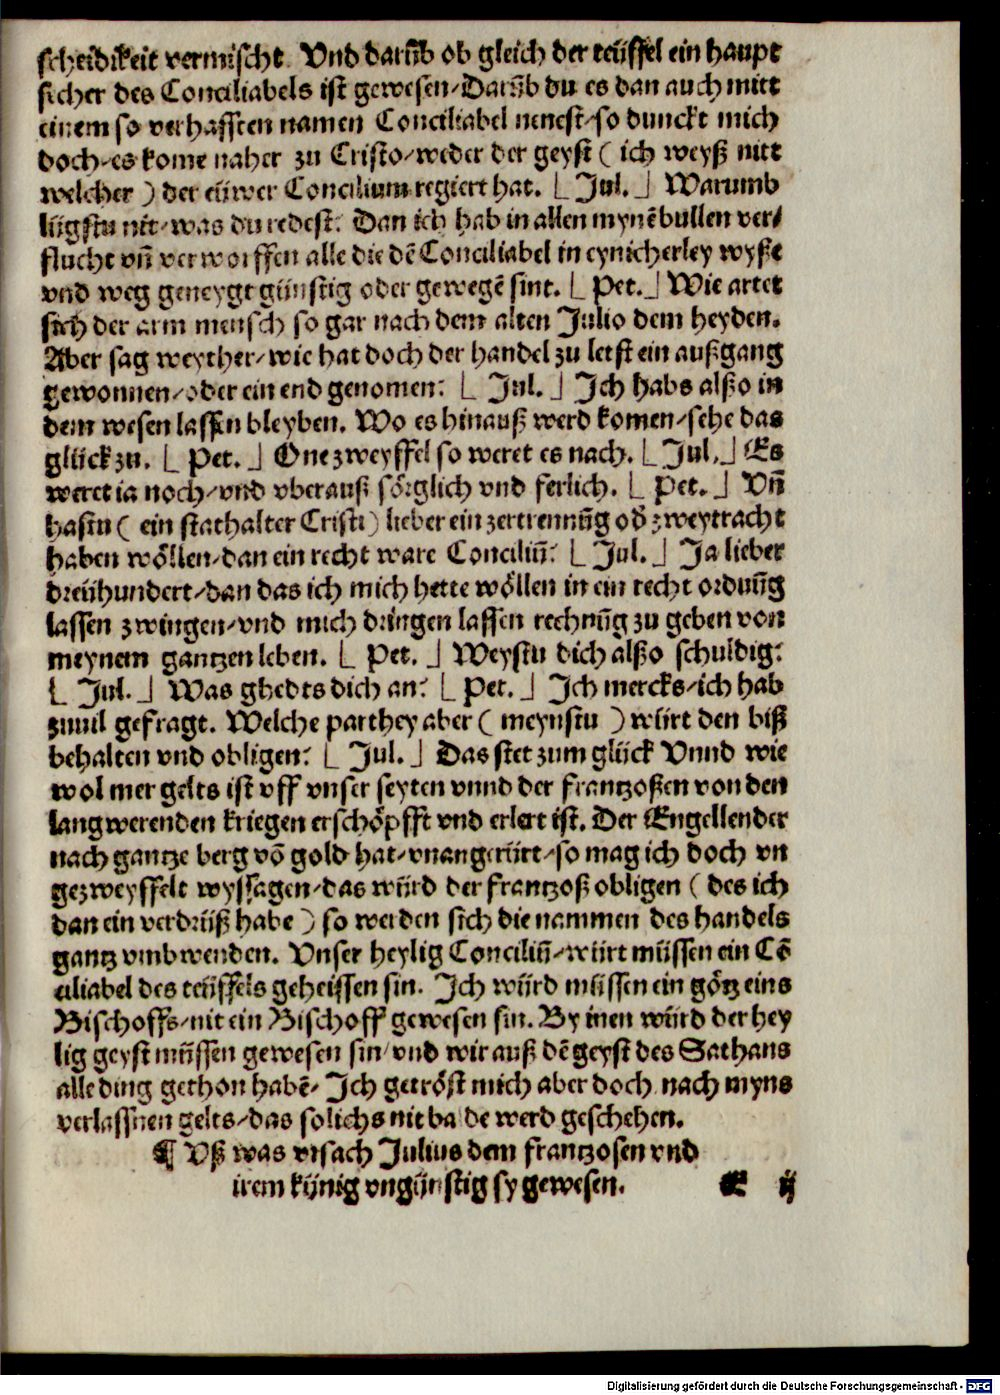 scheidikeit vermischt. Vnd darūb ob gleich der teüffel ein haupt
sicher des Conciliabels ist gewesen/Darūb du es dan auch mitt
einem so verhafften namen Conciliabel nenest/so dunckt mich
doch/es kome naher zu Cristo/weder der geyst ( ich weyß nitt
welcher ) der eüwer Concilium regiert hat. [ Jul. ] Warumb
lügstu nit/was du redest. Dan ich hab in allen mynē bullen ver/
flucht vñ verworffen alle die dē Conciliabel in eynicherley wyße
vnd weg geneygt günstig oder gewegē sint. [ Pet. ] Wie artet
sich der arm mensch so gar nach dem alten Julio dem heyden.
Aber sag weyther/wie hat doch der handel zu letst ein außgang
gewonnen/oder ein end genomen: [ Jul. ] Ich habs alßo in
dem wesen lassen bleyben. Wo es hinauß werd komen/sehe das
glück zu. [ Pet. ] One zweyffel so weret es nach. [ Jul. ] Es
weret ia noch/vnd vberauß sörglich vnd ferlich. [ Pet. ] Vñ
hastu ( ein stathalter Cristi) lieber ein zertrennūg od̄ zweytracht
haben wöllen/dan ein recht ware Conciliū: [ Jul. ] Ja lieber
dreühundert/dan das ich mich hette wöllen in ein recht ordnūg
lassen zwingen/vnd mich dringen lassen rechnūg zu geben von
meynem gantzen leben. [ Pet. ] Weystu dich alßo schuldig:
[ Jul. ] Was ghedts dich an: [ Pet. ] Ich mercks/ich hab
zuuil gefragt. Welche parthey aber ( meynstu ) würt den biß
behalten vnd obligen: [ Jul. ] Das stet zum glück Vnnd wie
wol mer gelts ist vff vnser seyten vnnd der frantzoßen von den
langwerenden kriegen erschöpfft vnd erlert ist. Der Engellender
nach gantze berg vō gold hat/vnangerürt/so mag ich doch vn
gezweyffelt wyssagen/das würd der frantzoß obligen ( des ich
dan ein verdrüß habe ) so werden sich die nammen des handels
gantz vmbwenden. Vnser heylig Conciliū/würt müssen ein Cō
ciliabel des teüffels geheissen sin. Ich würd müssen ein götz eins
Bischoffs/nit ein Bischoff gewesen sin. By inen würd der hey
lig geyst müssen gewesen sin/vnd wir auß dē geyst des Sathans
alle ding gethon habē/ Ich getröst mich aber doch nach myns
verlassnen gelts/das solichs nit balde werd geschehen.
¶ Vß was vrsach Julius dem frantzosen vnd
irem künig vngünstig sy gewesen. E ij
Digitalisierung gefördert durch die Deutsche Forschungsgemeinschaft - DFG